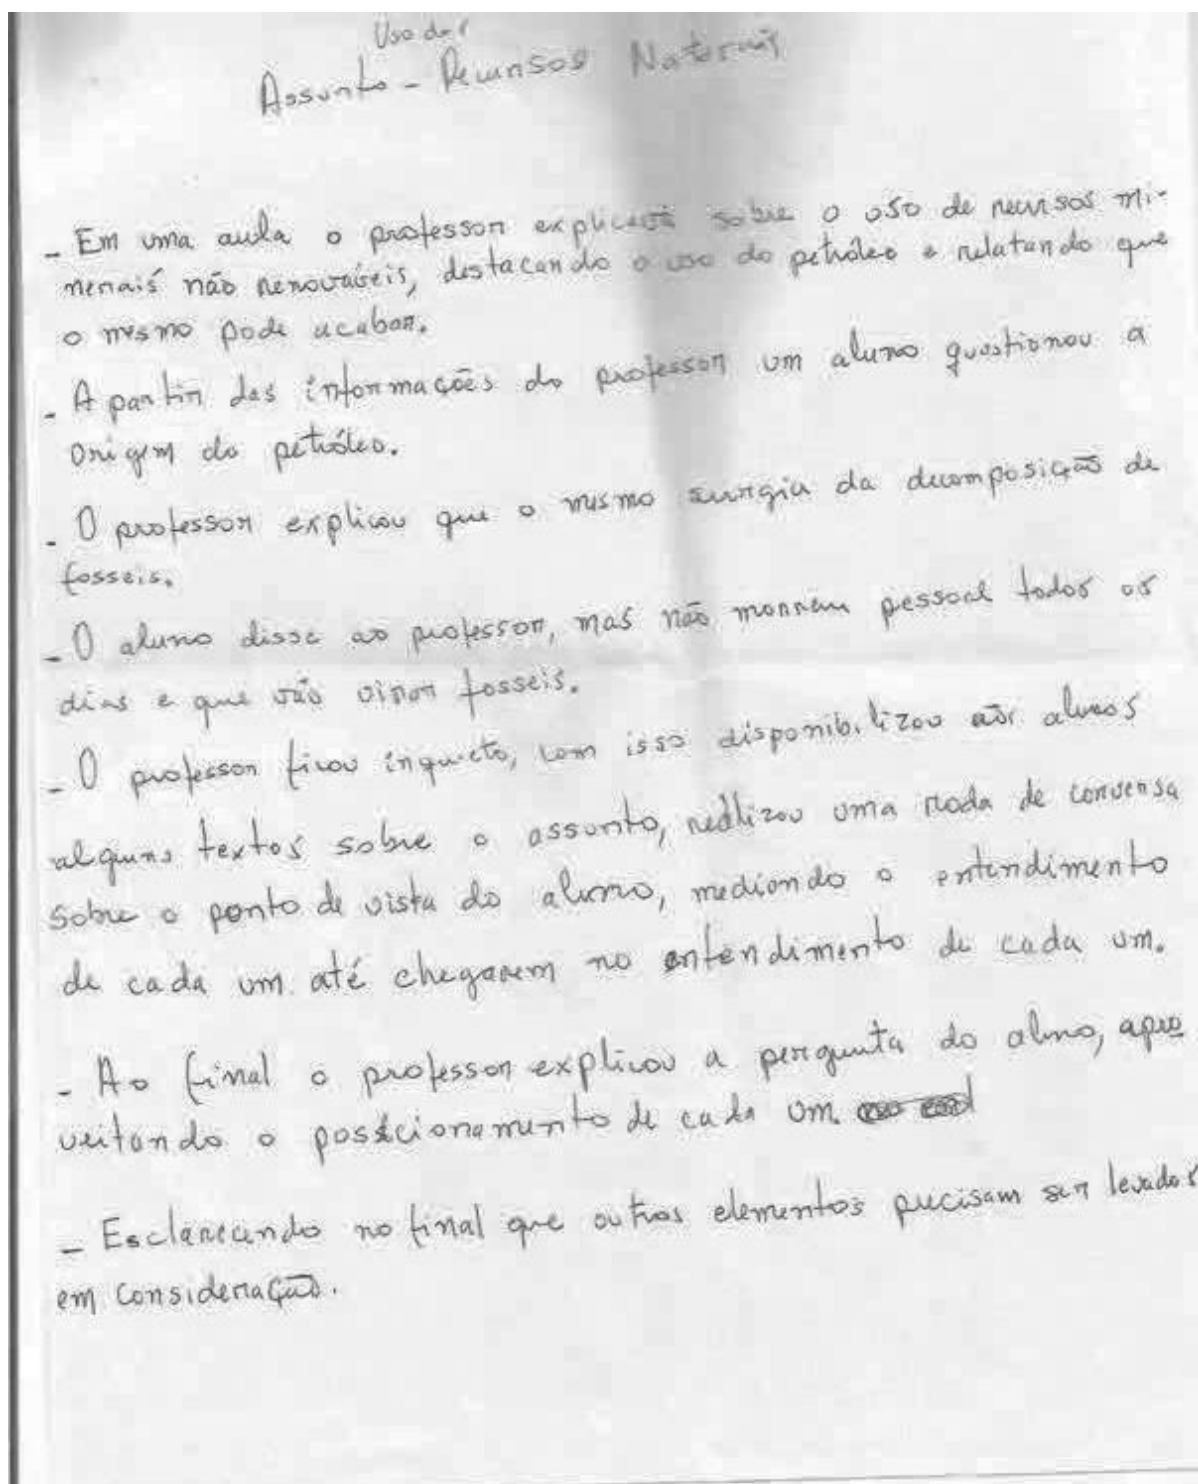 Uso dos
Assunto - Recursos Naturais
- Em uma aula o professor explicava sobre o uso de recursos mi-
nerais não renovavéis, destacando o uso do petróleo e relatando que
o mesmo pode acabar.
- A partir das informações do professor um aluno questionou a
origem do petróleo.
- O professor explicou que o mesmo surgia da decomposição de
fosseis.
- O aluno disse ao professor, mas não morrem pessoal todos os
dias e que vão virar fosseis.
- O professor ficou inquieto, com isso disponibilizou aos alunos
alguns textos sobre o assunto, realizou uma roda de conversa
sobre o ponto de vista do aluno, mediando o entendimento
de cada um até chegarem no entendimento de cada um.
- Ao final o professor explicou a pergunta do aluno, apro
veitando o posicionamento de cada um
- Esclarecendo no final que outros elementos precisam ser levados
em consideração.